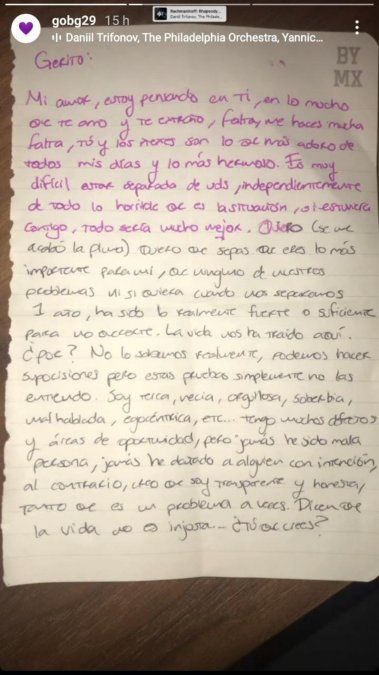 Rachmaninoff: Rhapsody...
Daniil Trifonov, The Philade...
gobg29 15 h
Daniil Trifonov, The Philadelphia Orchestra, Yannic...
BY
MX
Gerito:
Mi amor, estoy pensando en ti, en lo mucho
que te amo y te extraño, falta, me haces mucha
falta, tú y los nenes son lo que más adoro de
todos mis días y lo más hermoso. Es muy
difícil estar separada de uds, independientemente
de todo lo horrible que es la situación, si estuviera
contigo, todo sería mucho mejor. Quiero (se me
acabó la pluma) Quiero que sepas que eres lo más
importante para mi, que ninguno de nuestros
problemas ni si quiera cuando nos separamos
1 año, ha sido lo realmente fuerte o suficiente
para no quererte. La vida nos ha traído aquí.
¿Por? No lo sabemos realmente, podemos hacer
suposiciones pero estas pruebas simplemente no las
entiendo. Soy terca, necia, orgullosa, soberbia,
mal hablada, egocéntrica, etc... tengo muchos defectos
y áreas de oportunidad, pero jamás he sido mala
persona, jamás he dañado a alguien con intención,
al contrario, creo que soy transparente y honesta,
tanto que es un problema a veces. Dicen que
la vida no es injusta... ¿Tú qué crees?